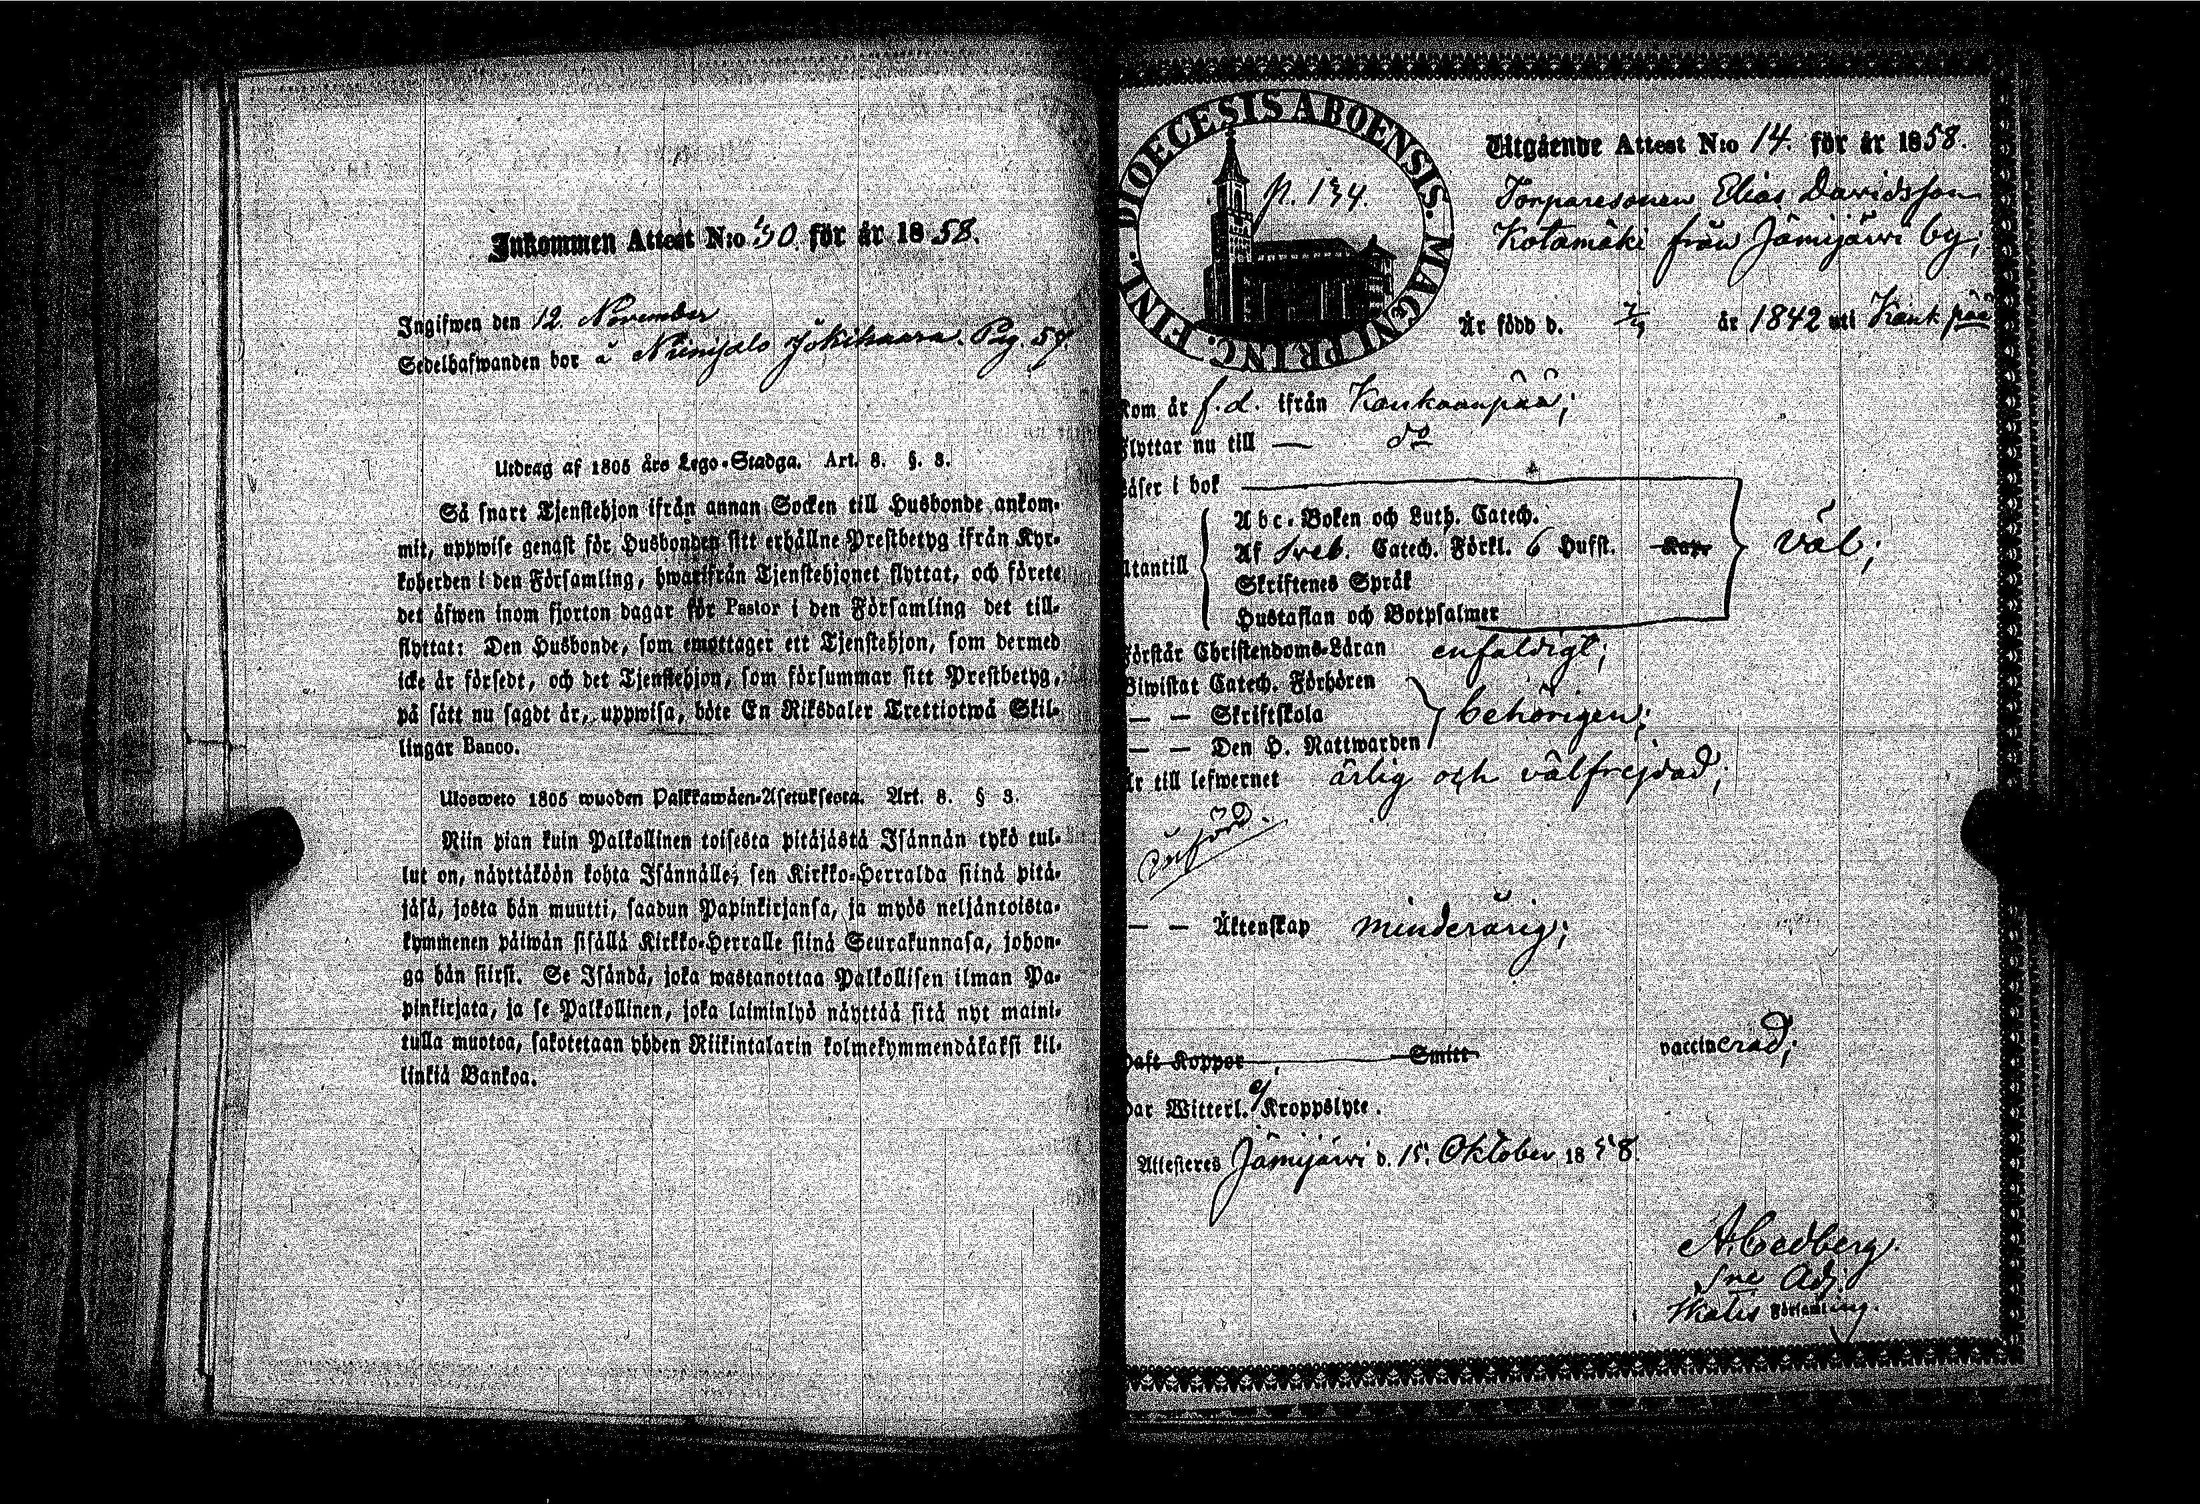 Inkommen Attest N:o 30 för år 1858.
Ingifwen den 12. November
Sedelhafwanden bor å Niemijalo Jokihaara. Pag. 57.
Utdrag af 1805 års Lego-Stadga. Art. 8. §. 3.
Så snart Tjenstehjon ifrån annan Socken till Husbonde ankom-
mit, uppwise genast för Husbonden sitt erhållne Prestbetyg ifrån Kyr-
koherden i den Församling, hwarifrån Tjenstehjonet flyttat, och förete
det äfwen inom fjorton dagar för Pastor i den Församling det till-
flyttat: Den Husbonde, som emottager ett Tjenstehjon, som dermed
icke är försedt, och det Tjenstehjon, som försummar sitt Prestbetyg,
på sätt nu sagdt är, uppwisa, böte En Riksdaler Trettiotwå Skil-
lingar Banco.
Ulosweto 1805 wuoden Palkkawäen-Asetuksesta. Art. 8. § 3.
Niin pian kuin Palkollinen toisesta pitäjästä Isännän tykö tul-
lut on, näyttäköön kohta Isännälle, sen Kirkko-Herralda siinä pitä-
jäsä, josta hän muutti, saadun Papinkirjansa, ja myös neljäntoista-
kymmenen päiwän sisällä Kirkko-Herralle siinä Seurakunnasa, johon-
ga hän siirst. Se Isändä, joka wastanottaa Palkollisen ilman Pa-
pinkirjata, ja se Palkollinen, joka laiminlyö näyttää sitä nyt maini-
tulla muotoa, sakotetaan yhden Riikintalarin kolmekymmendäkaksi kil-
linkiä Bankoa.
DIOECESIS ABOENSIS. MAGNI PRINC. FINL.
N. 134.
Utgående Attest N:o 14. för år 1858.
Torparesonen Elias Davidsson
Kotamäki från Jämijärvi by;
Är född d. år 1842 uti Kankpää
Kom år f.d. ifrån Kankaanpää;
Flyttar nu till — do
Läser i bok
Utantill
Abc-Boken och Luth. Catech.
Af Sveb. Catech. Förkl. 6 Hufst. Kap.
Skriftenes Språk
Hustaflan och Botpsalmer
väl;
Förstår Christendoms-Läran enfaldigt;
Biwistat Catech. Förhören
— — Skriftskola behörigen;
— — Den H. Nattwarden
Är till lefwernet ärlig och välfrejdad;
Införd.
— — Äktenskap minderårig;
Haft Koppor Smitt vaccinerad;
Har Witterl. ej Kroppslyte.
Attesteres Jämijärvi d. 15. Oktober 1858.
A. Cedberg.
Sne Adj.
Ikalis Församling.